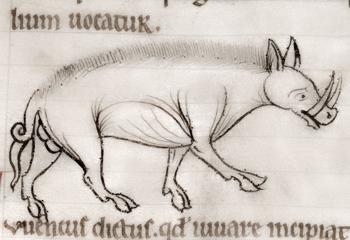 lium uocatur.
Iuuencus dictus. qđ iuuare incipiat